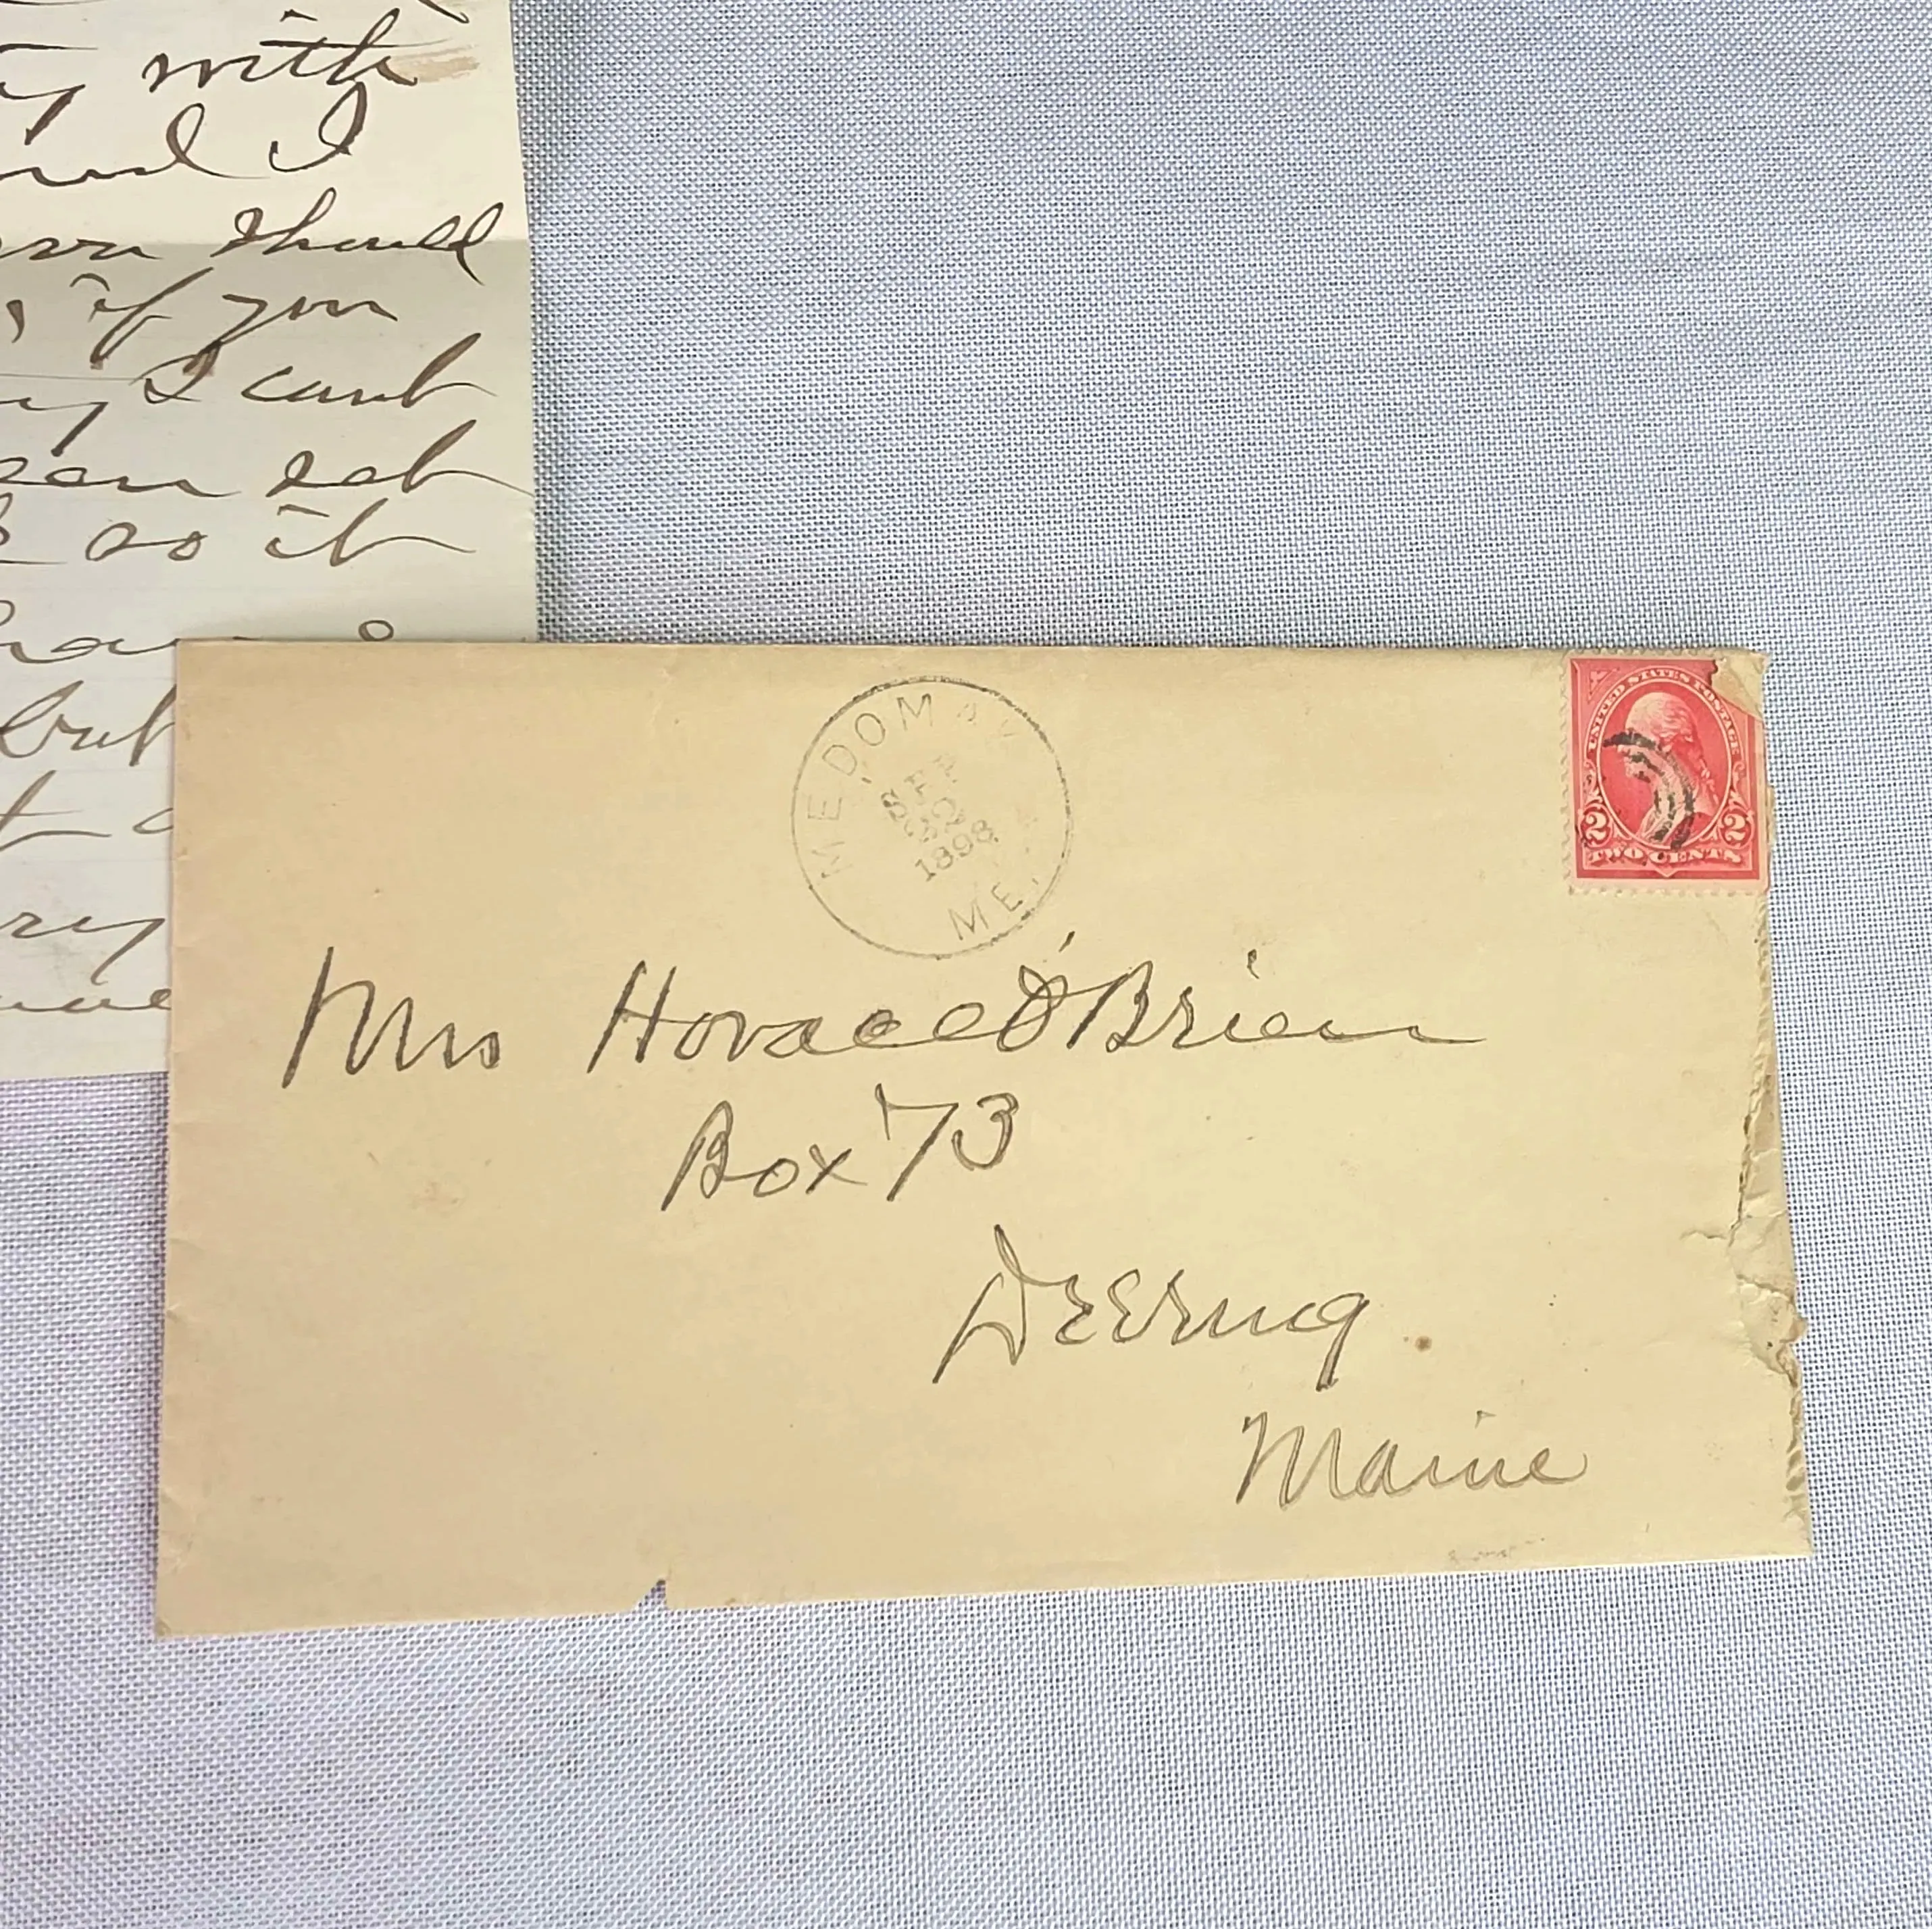 with
and I
should
if you
I cant
set
so it
but
MEDOMAK
SEP
22
1898
ME.
UNITED STATES POSTAGE
2 2
TWO CENTS
Mrs Horace O'Brien
Box 73
Deering
Maine